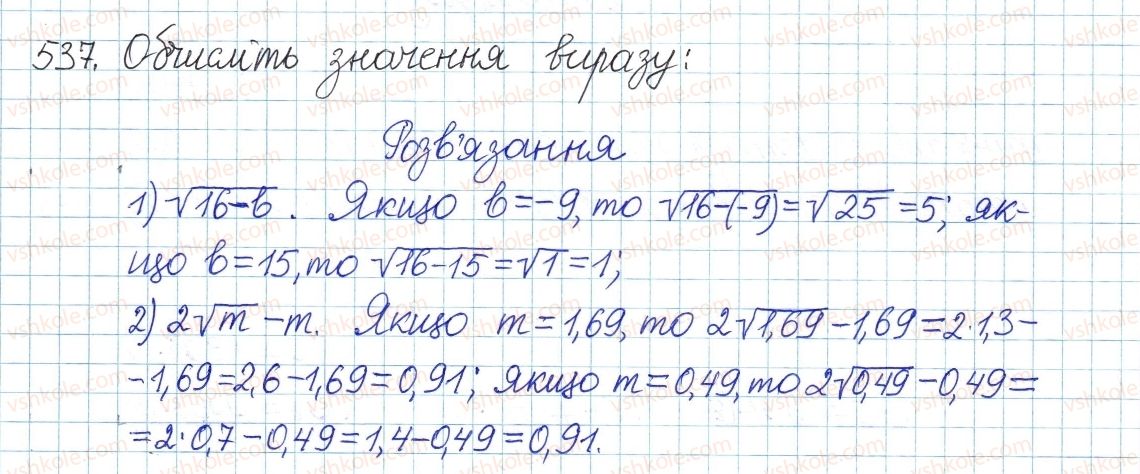 537. Обчисліть значення виразу:
Розв'язання
1) √16-b. Якщо b=-9, то √16-(-9)=√25=5; як-
що b=15, то √16-15=√1=1;
2) 2√m-m. Якщо m=1,69, то 2√1,69-1,69=2·1,3-
-1,69=2,6-1,69=0,91; якщо m=0,49, то 2√0,49-0,49=
=2·0,7-0,49=1,4-0,49=0,91.